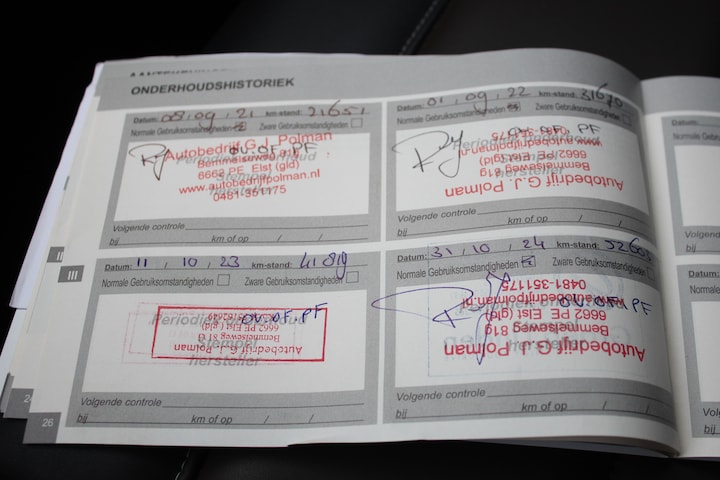 ONDERHOUDSHISTORIEK
Datum: 08, 09, 21 km-stand: 21651
Normale Gebruiksomstandigheden Zware Gebruiksomstandigheden
Autobedrijf G.J. Polman
Bemmelseweg 81g
6662 PE Elst (gld)
www.autobedrijfpolman.nl
0481-351175
OV. OF. PF
Periodiek onderhoud
Stempel
hersteller
Volgende controle
bij km of op / /
Datum: 01, 09, 22 km-stand: 31670
Normale Gebruiksomstandigheden Zware Gebruiksomstandigheden
OV. OF. PF
Autobedrijf G.J. Polman
Bemmelseweg 81g
6662 PE Elst (gld)
www.autobedrijfpolman.nl
0481-351175
Periodiek onderhoud
Stempel
hersteller
Volgende controle
bij km of op / /
III
Datum: 11, 10, 23 km-stand: 41819
Normale Gebruiksomstandigheden Zware Gebruiksomstandigheden
OV. OF. PF
Autobedrijf G.J. Polman
Bemmelseweg 81 G
6662 PE Elst (gld)
Periodiek onderhoud
Stempel
hersteller
Volgende controle
bij km of op / /
Datum: 31, 10, 24 km-stand:
Normale Gebruiksomstandigheden Zware Gebruiksomstandigheden
OV. OF. PF
Autobedrijf G.J. Polman
Bemmelseweg 81g
6662 PE Elst (gld)
www.autobedrijfpolman.nl
0481-351175
hersteller
Volgende controle
bij km of op / /
26
Datum:
Normale
Volgende
bij
Datum:
Normale
Volgende
bij